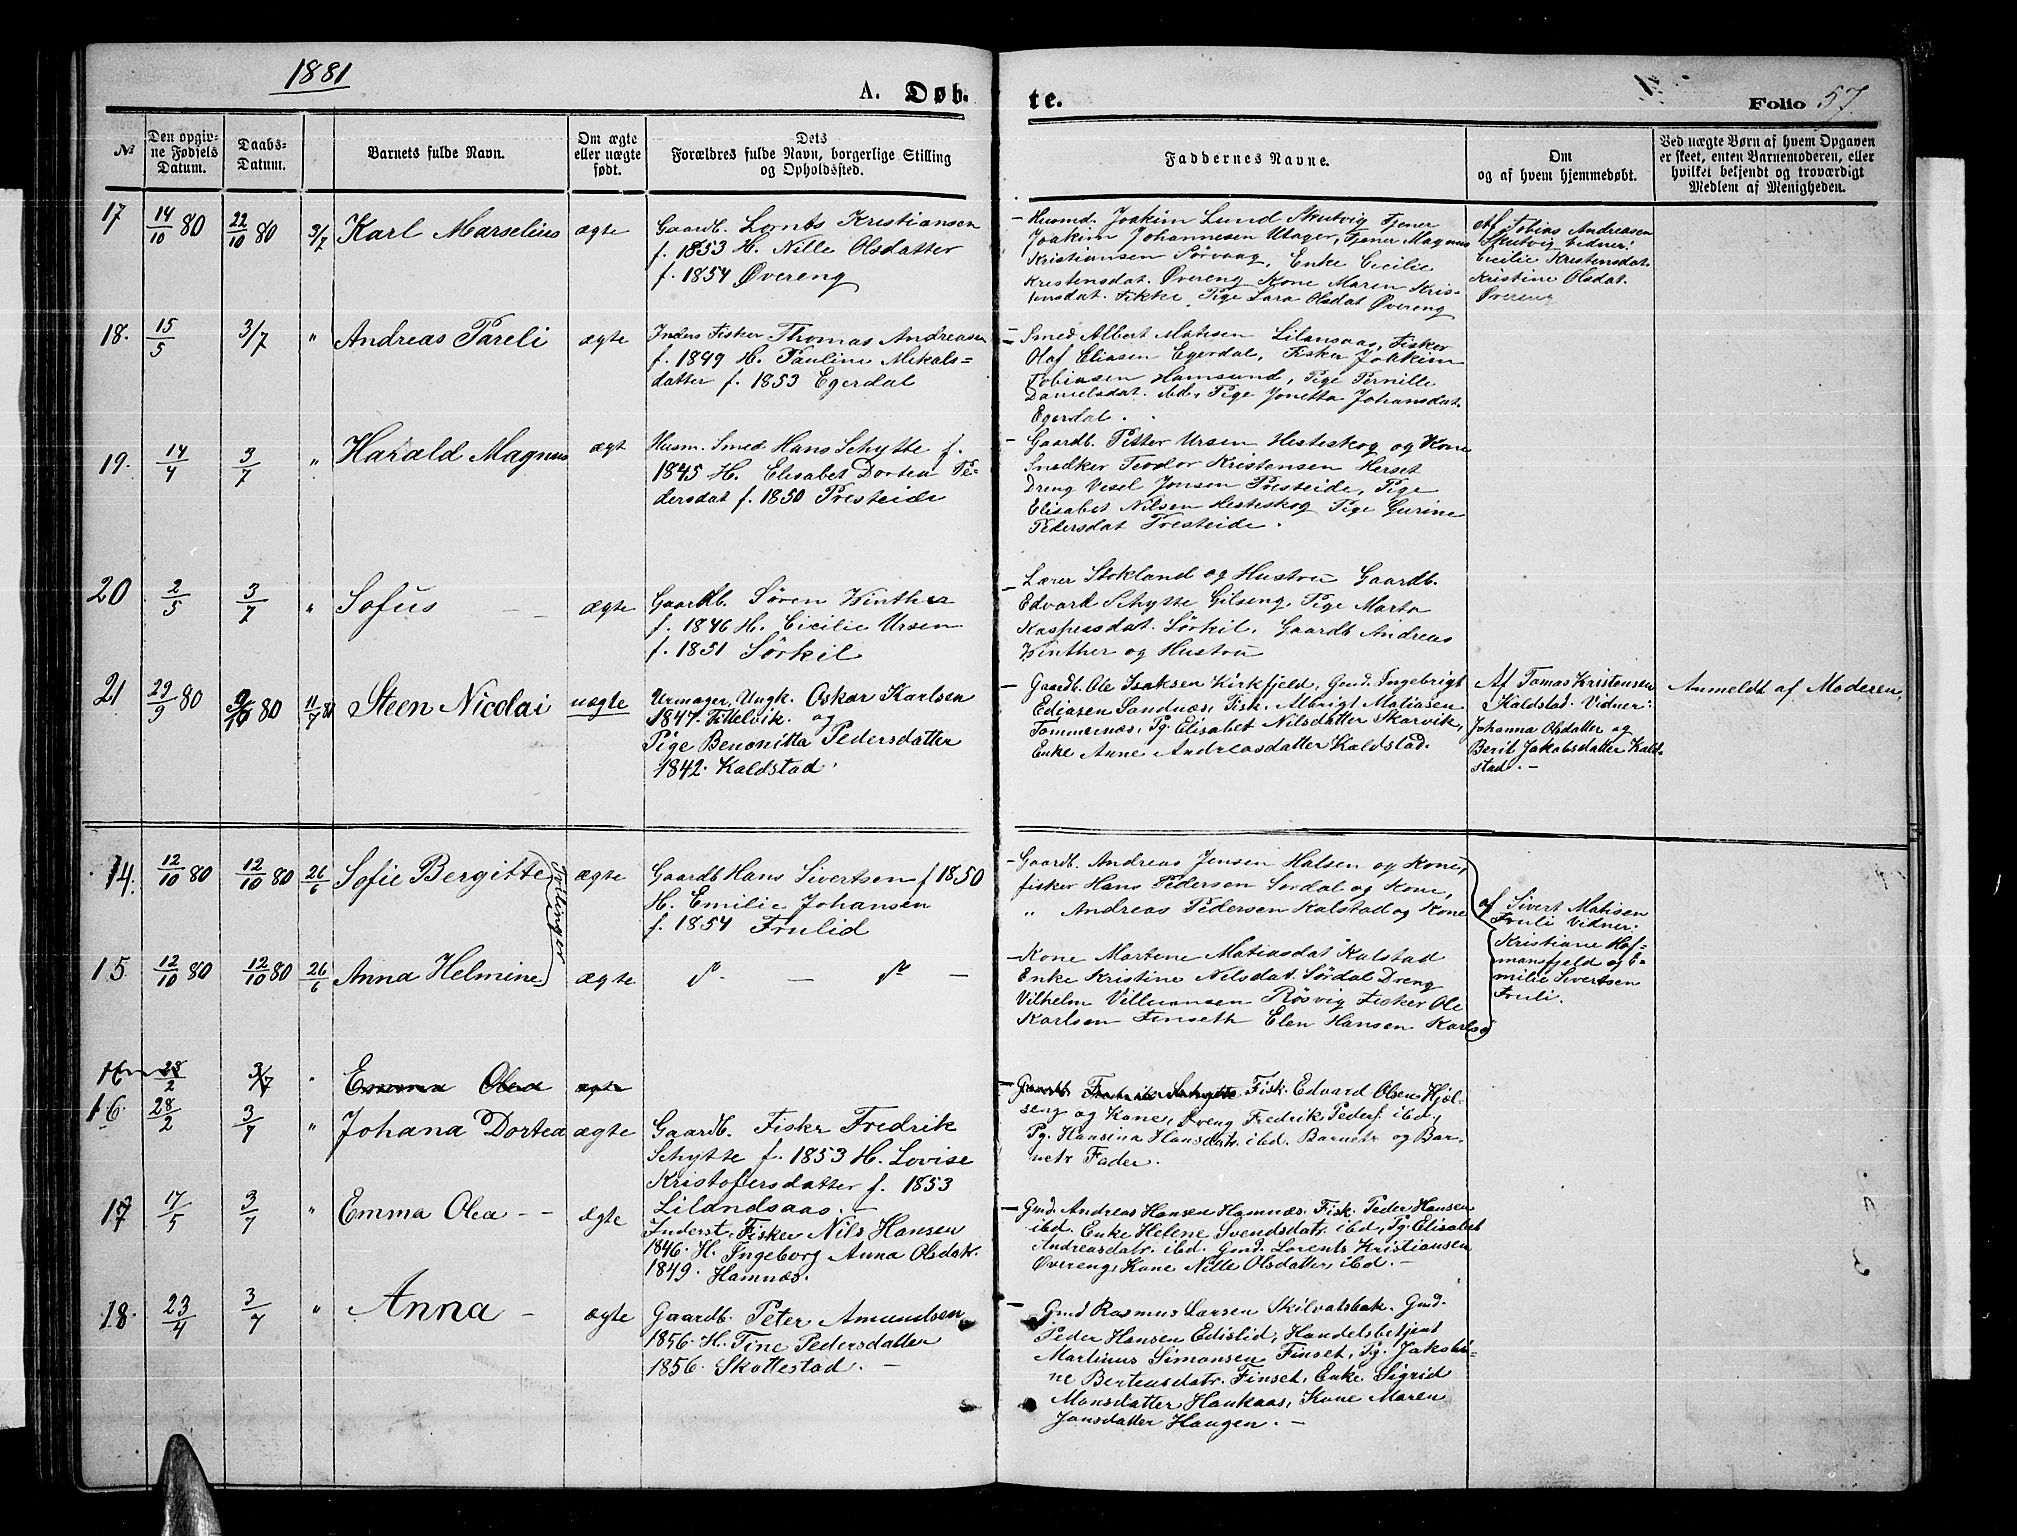 1881
A. Døb.
te.
Folio 57.
№
Den opgiv-
ne Fødsels
Datum.
Daabs-
Datum.
Barnets fulde Navn.
Om ægte
eller uægte
født.
Dets
Forældres fulde Navn, borgerlige Stilling
og Opholdssted.
Faddernes Navne.
Om
og af hvem hjemmedøbt.
Ved uægte Børn af hvem Opgaven
er skeet, enten Barnemoderen, eller
hvilket bekjendt og troværdigt
Medlem af Menigheden.
17 14/10 80 22/10 80 3/7 Karl Marselius ægte
Gaardb. Lorents Kristiansen
f. 1853 H. Nille Olsdatter
f. 1854 Øvereng
- Husmd. Joakim Lund Skutvig Tjener
Joakim Johannesen Utager, Tjener Magnus
Kristiansen Sørvaag, Enke Cecilie
Kristensdat. Øvereng Kone Maren Kris-
tensdat. Pige Sara Olsdat Øvereng
Af Tobias Andreasen
Skutvig Vidner:
Cecilie Kristensdat.
Kristine Olsdat.
Øvereng
18. 15/5 3/7 " Andreas Pareli ægte
Inders Fisker Thomas Andreasen
f. 1849 H. Pauline Mikals=
datter f. 1853 Egerdal
- Smed Albert Matisen Lilansaas, Fisker
Olaf Eliasen Egerdal, Fisker Joakim
Tobiasen Hamsund, Pige Pernille
Danielsdat. ibd, Pige Jonetta Johansdat.
Egerdal.
19. 14/4 3/7 " Harald Magnus ægte
Husm. Smed Hans Schytte f.
1845 H. Elisabet Dortea Pe-
dersdat f. 1850 Presteide
- Gaardb. Petter Ursen Hesteskog og Kone
Snedker Teodor Kristensen Herset
Dreng Vesel Jonsen Presteide, Pige
Elisabet Nilsen Hesteskog Pige Gurine
Pedersdat Presteide.
20 2/5 3/7 " Sofus ægte
Gaardb. Søren Winther
f. 1846 H. Cicilie Ursen
f. 1851 Sørkil
- Lærer Stokland og Hustru Gaardb.
Edvard Schytte Gilseng, Pige Marta
Kaspersdat. Sørkil, Gaardb Andreas
Winther og Hustru
21 29/9 80 3/10 80 11/7 81 Steen Nicolai uægte
Urmager, Ungk. Oskar Karlsen
1847. og
Pige Benonitta Pedersdatter
1842. Kaldstad.
- Gaardb. Ole Isaksen Kirkfjeld, Gmd. Ingebrigt
Ediasen Sandnæs, Fisk. Albrigt Matiasen
Tommernæs, Pg. Elisabet Nilsdatter Skarvik,
Enke Anne Andreasdatter Kaldstad.
Af Tomas Kristensen
Kaldstad. Vidner:
Johanna Olsdatter og
Berit Jakobsdatter Kald-
stad. -
Anmeldt af Moderen.
14. 12/10 80 12/10 80 26/6 Sofie Bergitte ægte
Tvillinger
Gaardb Hans Sivertsen f 1850
H. Emilie Johansen
f. 1854 Frulid
- Gaardb. Andreas Jensen Halsen og Kone,
fisker Hans Pedersen Sørdal og Kone,
" Andreas Pedersen Kalstad og Kone
af Sivert Matisen
Fruli Vidner:
Kristiane Hof-
mansfjeld og E-
milie Sivertsen
Fruli.
15 12/10 80 12/10 80 26/6 Anna Helmine ægte
- Kone Martene Matiasdat Kalstad
Enke Kristine Nilsdat. Sørdal Dreng
Vilhelm Villumsen Røsvig Fisker Ole
Karlsen Finseth Elen Hansen
16 28/2 3/7 " Emma Olea ægte
16. 28/2 3/7 " Johana Dortea ægte
Gaardb. Fisker Fredrik
Schytte f. 1853 H. Lovise
Kristofersdatter f. 1853
Lilandsaas. -
- Gaardb. Fredrik Schytte Fisk. Edvard Olsen Hjæl-
seng og Kone, Dreng Fredrik Peders. ibd.,
Pg. Hansina Hansdatr. ibd. Barnets og Bar-
nets Fader.
17 17/5 3/7 " Emma Olea - - ægte
Inderst. Fisker Nils Hansen
1846. H. Ingeborg Anna Olsdatr.
1849. Hamnæs.
- Gmd. Andreas Hansen Hamnæs. Fisk. Peder Hansen
ibd. Enke Helene Svendsdatr. ibd, Pg. Elisabet
Andreasdatr. ibd. Gmd. Lorents Kristiansen
Øvereng, Kone Nille Olsdatter, ibd. -
18. 23/4 3/7 " Anna - ægte
Gaardb. Peter Amundsen
1856. H. Tine Pedersdatter
1856. Skottestad. -
- Gmd Rasmus Larsen Skilvatsbak. Gmd.
Peder Hansen Edislid, Handelsbetjent
Martinus Simonsen Finset, Pg. Jakobi-
ne Berteusdatr. Finset, Enke Sigrid
Monsdatter Haukaas, Kone Maren
Jonsdatter Haugen. -